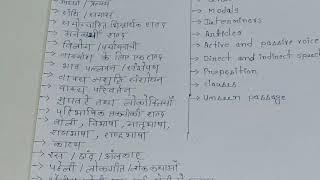 संधि / समास
समोच्चरित भिन्नार्थक शब्द
अनेकार्थी शब्द
विलोम / पर्यायवाची
वाक्यांश के लिए एक शब्द
भाव पल्लवन / संक्षेपण
वाक्य
वाक्य परिवर्तन
मुहावरे तथा लोकोक्तियाँ
पारिभाषिक तकनीकी शब्द
बोली, विभाषा, मातृभाषा,
राजभाषा, राष्ट्रभाषा
रस / छंद / अलंकार
पहेली / लोकगीत / लोककथाओं
Modals
Determiners
Articles
Active and passive voice
Direct and indirect speech
Preposition
clauses
Unseen passage